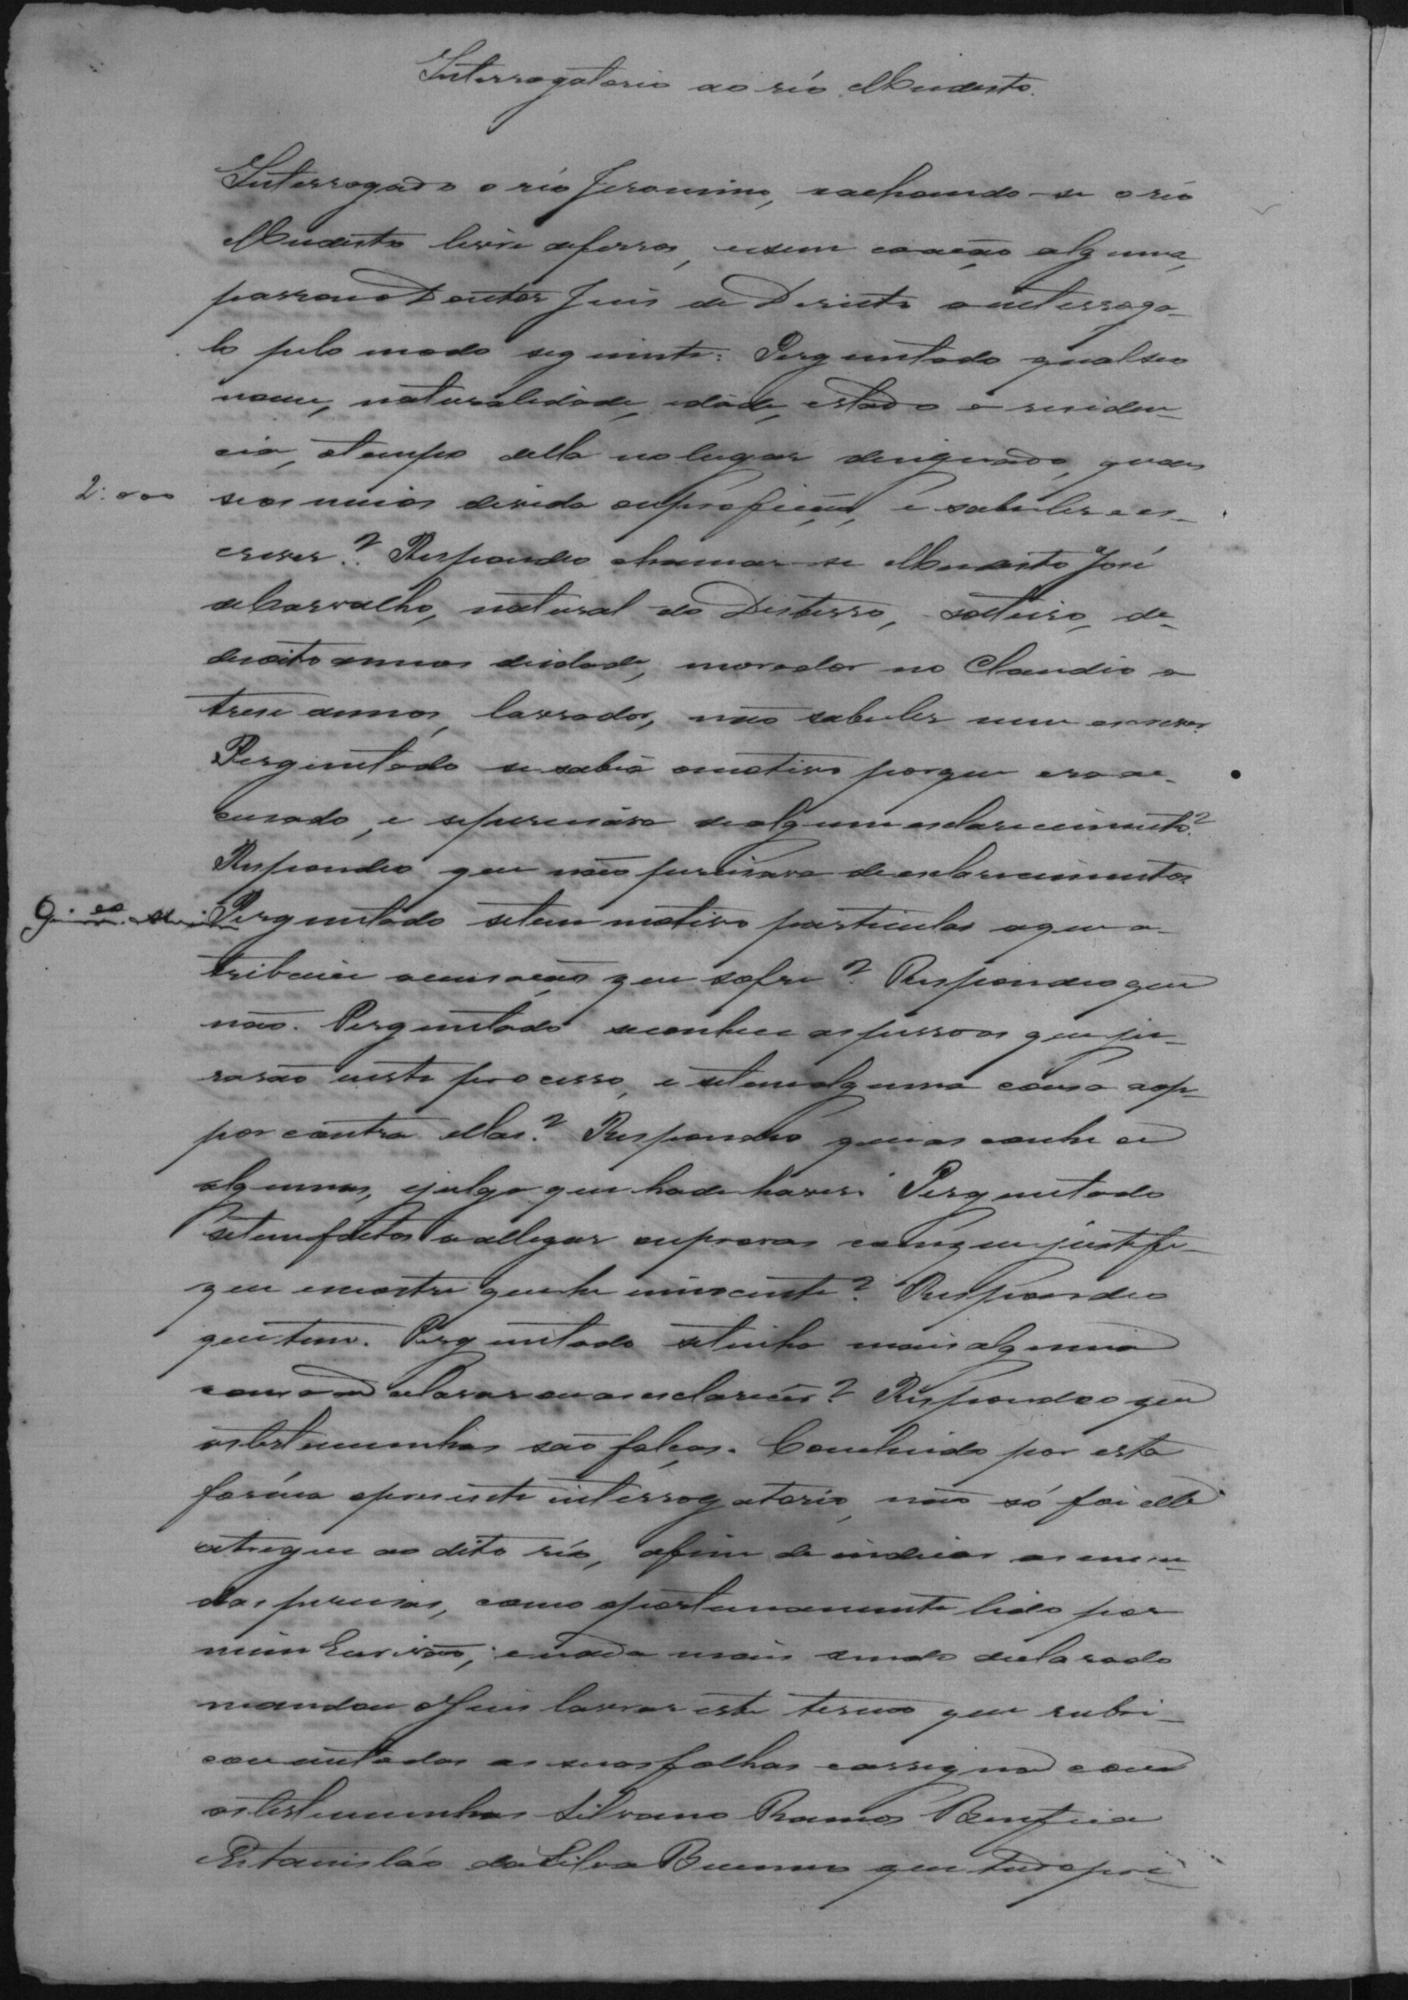 Interrogatorio ao réo Modesto.
Interrogado o réo Jeronimo, e achando-se o réo
Modesto livre de ferros, e sem coação alguma,
passou o Doutor Juis de Direito a interroga-
lo pelo modo seguinte: Perguntado qual seo
nome, naturalidade, edade, estado e residen-
cia, e tempo della no lugar designado, quaes
2:000
seos meios de vida ou profição, e sabe ler e es-
crever? Respondeo chamar-se Modesto José
de Carvalho, natural do Desterro, solteiro, de
desoito annos de idade, morador no Claudio a
trese annos, lavrador, não sabe ler nem escrever.
Perguntado se sabia o motivo porque era ac-
cusado, e se precisava de algum esclarecimento?
Respondeo que não precisava de esclarecimentos
Perguntado se tem motivo particular a que a-
tribuia a accusação que sofre? Respondeo que
não. Perguntado se conhece as pessoas que ju-
rarão neste processo, e se tem alguma cousa a op-
por contra ellas? Respondeo que as conhece
algumas, e julga que hade haver. Perguntado
se tem factos a allegar ou provas com que justifi-
que e mostre que he innocente? Respondeo
que tem. Perguntado se tinha mais alguma
cousa a declarar ou a esclarecer? Respondeo que
as testemunhas são falças. Concluido por esta
forma o presente interrogatorio, não só foi elle
entregue ao dito réo, afim de indicar as emen-
das precisas, como oportunamente lido por
mim Escrivão; e nada mais sendo declarado
mandou o Juis lavrar este termo que rubri-
cou em todas as suas folhas e assigna com
as testemunhas Silvano Ramos Bemfica
Estanisláo da Silva Bueno que tudo pre-